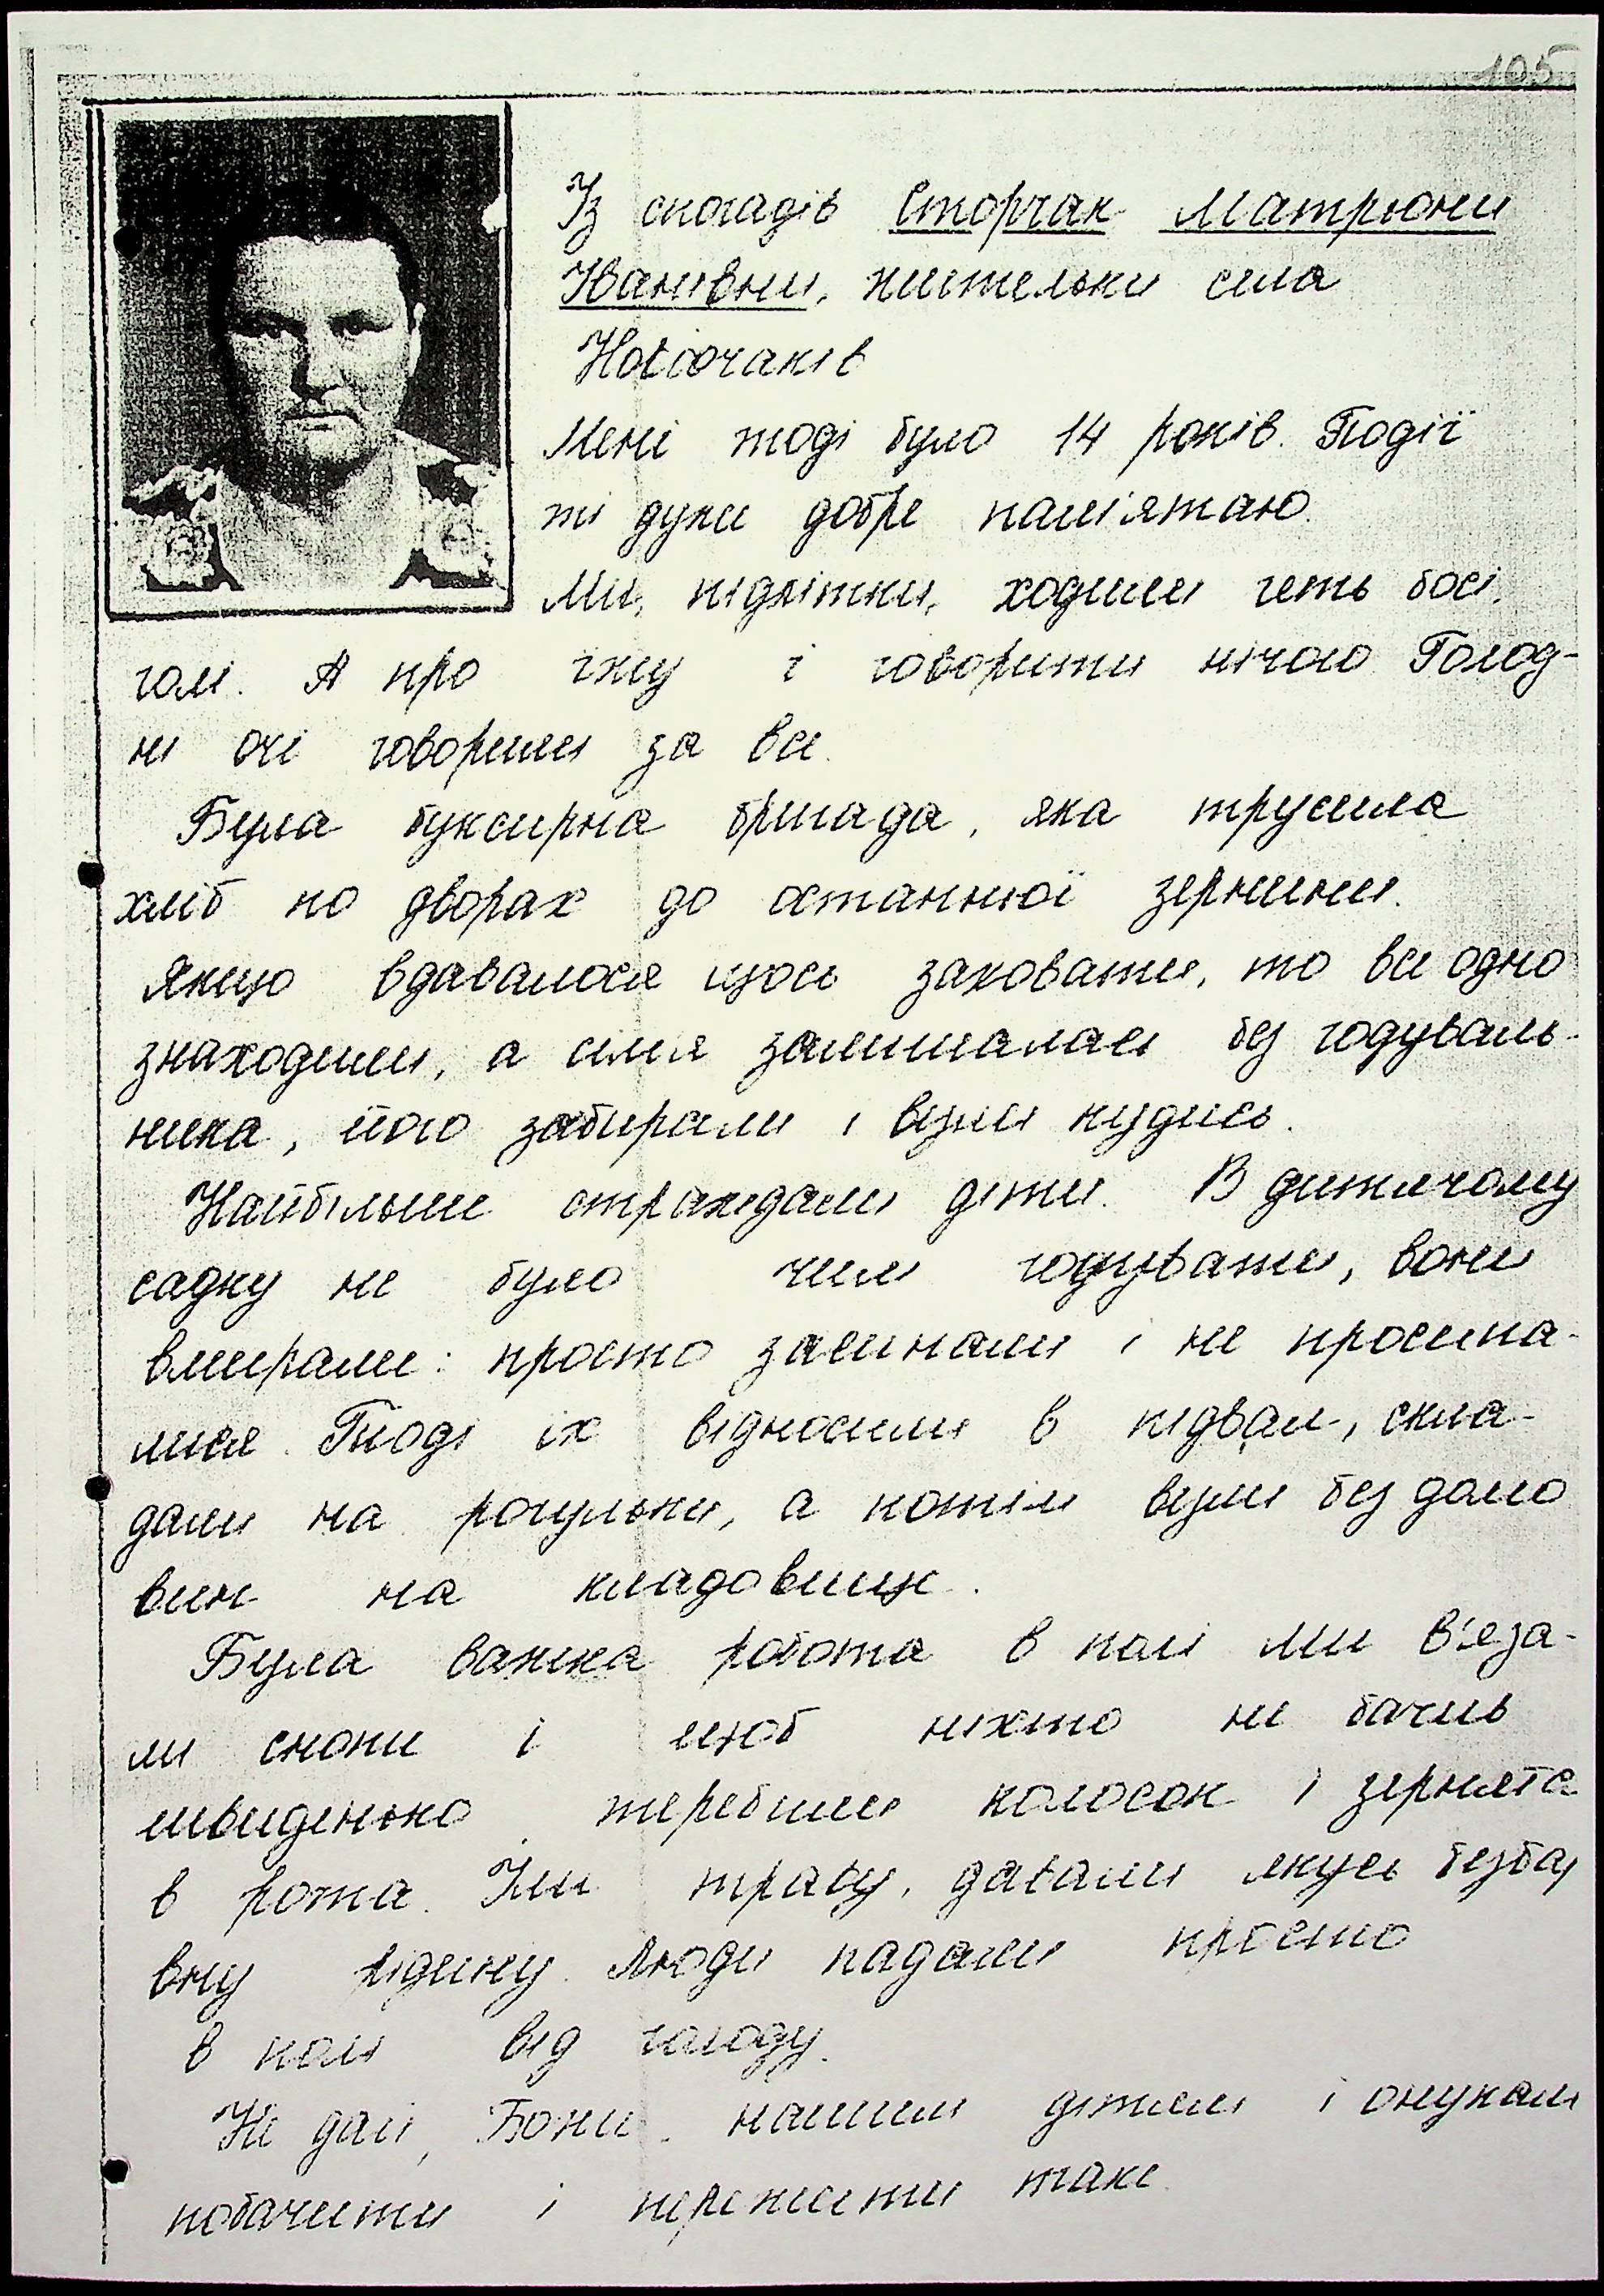 105
Із спогадів Сторчак Матрюни
Іванівни, жительки села
Новіочаків
Мені тоді було 14 років. Події
ті дуже добре пам'ятаю.
Ми, підлітки, ходили геть босі,
голі. А про їжу і говорити нічого Голод-
ні очі говорили за все.
Була буксирна бригада, яка трусила
хліб по дворах до останньої зернини.
Якщо вдавалося щось заховати, то все одно
знаходили, а сім'я залишалась без годуваль-
ника, його забирали і везли кудись.
Найбільше страждали діти. В дитячому
садку не було чим годувати, вони
вмирали: просто засинали і не просипа-
лися. Тоді їх відносили в підвал, скла-
дали на рогульки, а потім везли без домо
вин на кладовище.
Була важка робота в полі Ми в'яза-
ли снопи і щоб ніхто не бачив
швиденько теребили колосок і зернята
в рота. Їли траву, давали якусь безбар
вну рідину. Люди падали просто
в полі від голоду.
Не дай, Боже, нашим дітям і онукам
побачити і пережити таке.